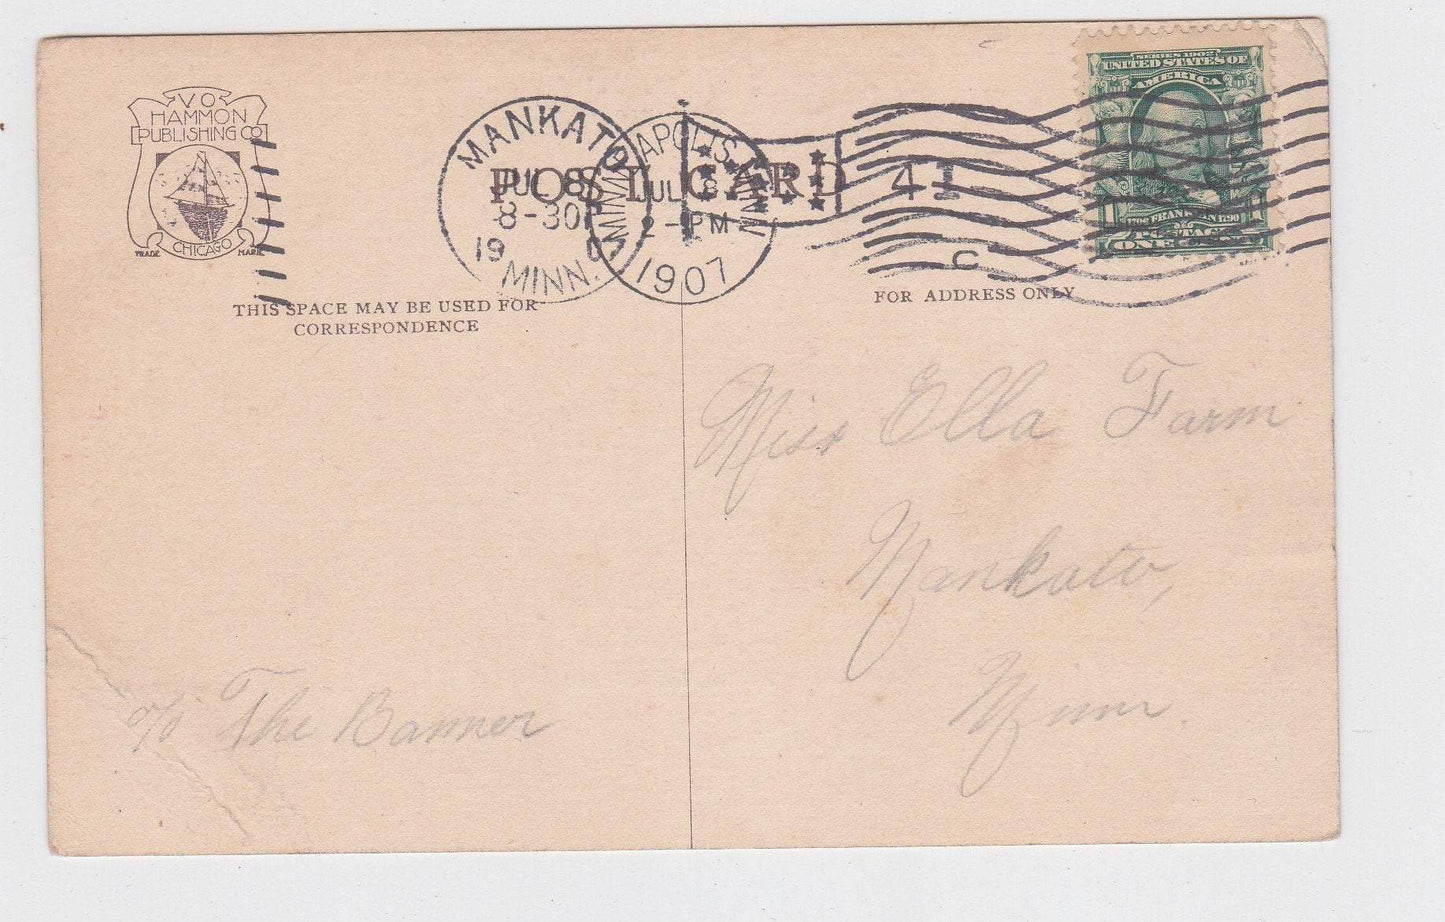 V O
HAMMON
PUBLISHING CO
CHICAGO
TRADE MARK
POST CARD
MANKATO
JUL 8
8-30
19 07
MINN.
MINNEAPOLIS, MINN
JUL 8
2-PM
1907
41
C
SERIES 1902
UNITED STATES OF
AMERICA
1706 FRANKLIN 1790
POSTAGE
ONE CENT
THIS SPACE MAY BE USED FOR
CORRESPONDENCE
FOR ADDRESS ONLY
Miss Ella Farm
Mankato,
Minn.
c/o The Banner